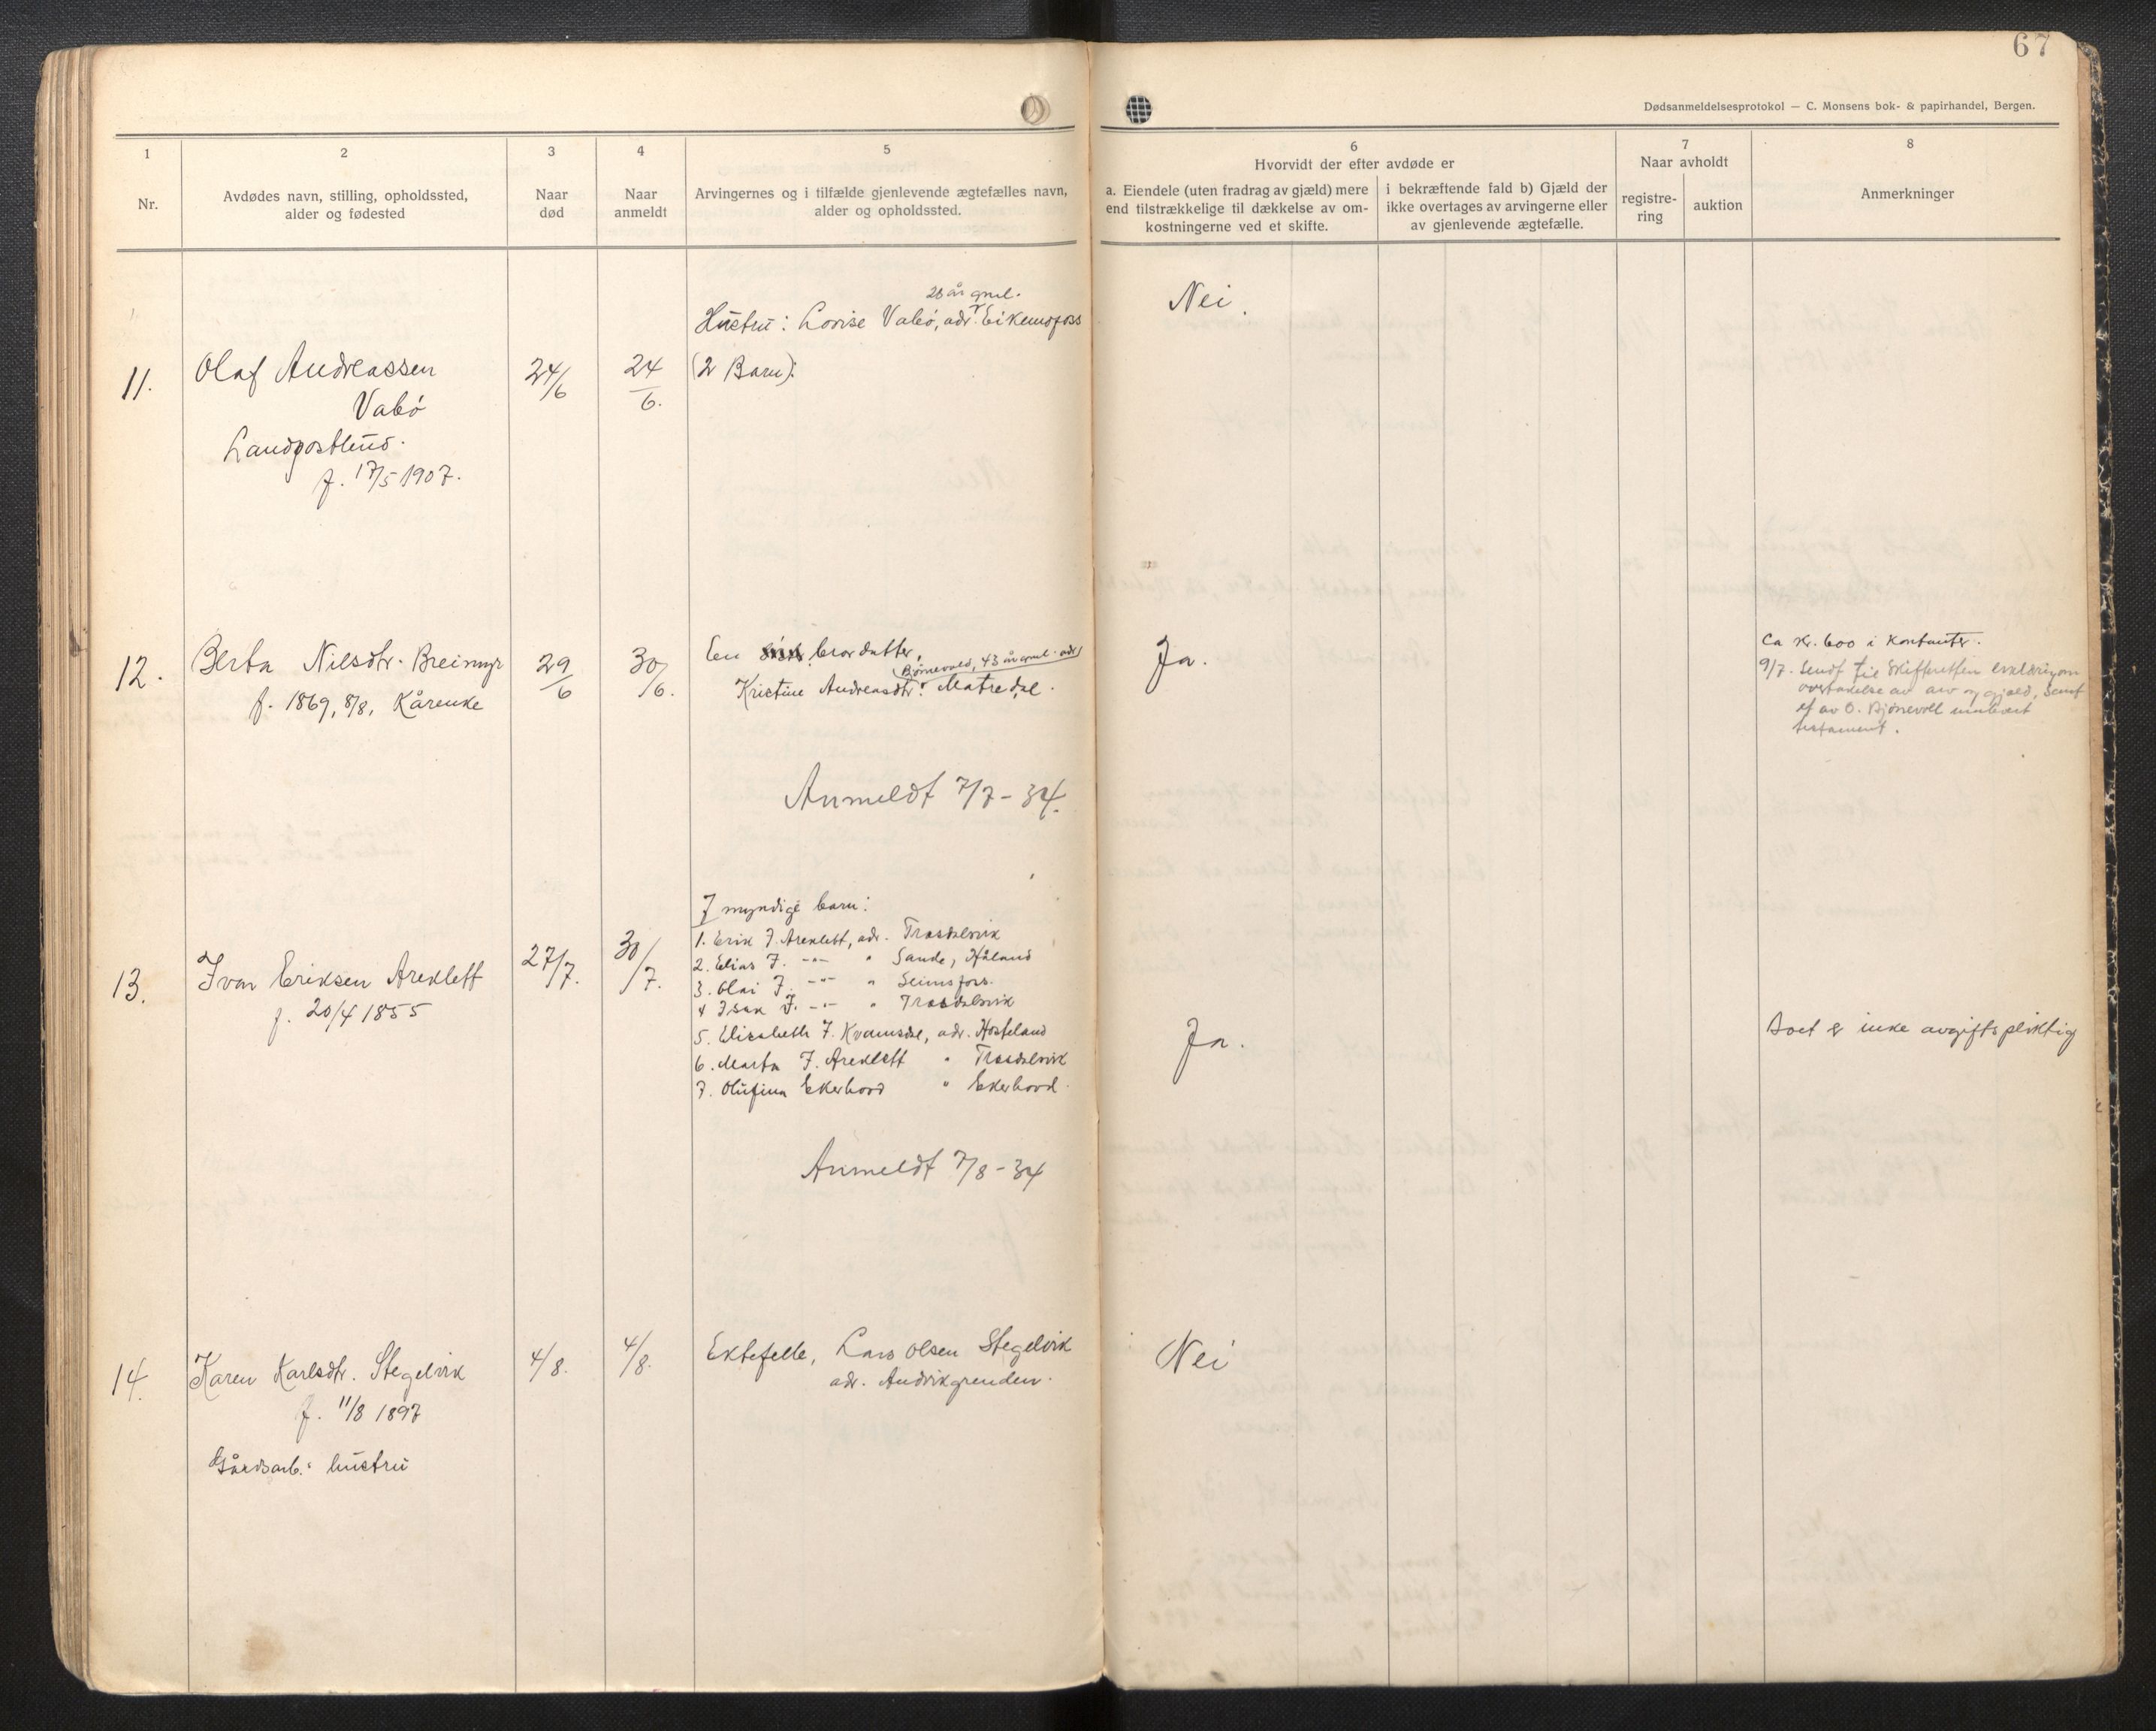 67
Dødsanmeldelsesprotokol — C. Monsens bok- & papirhandel, Bergen.
1
2
3
4
5
6
7
8
Nr.
Avdødes navn, stilling, opholdssted,
alder og fødested
Naar
død
Naar
anmeldt
Arvingernes og i tilfælde gjenlevende ægtefælles navn,
alder og opholdssted.
Hvorvidt der efter avdøde er
a. Eiendele (uten fradrag av gjæld) mere
end tilstrækkelige til dækkelse av om-
kostningerne ved et skifte.
i bekræftende fald b) Gjæld der
ikke overtages av arvingerne eller
av gjenlevende ægtefælle.
Naar avholdt
registre-
ring
auktion
Anmerkninger
11.
Olaf Andreassen
Vabø
Landpostbud.
f. 17/5 1907.
24/6
24
6.
28 år gml.
Hustru: Lovise Vabø, adr. Eikemofoss
(2 Barn):
Nei.
12.
Berta Nilsdtr. Breimyr
f. 1869, 8/8, Kårenke
29
6
30/6.
En brordatter,
Bjørnevold, 43 år gml. adr
Kristine Andreasdtr. Matredal.
Anmeldt 7/7-34.
Ja.
Ca kr. 600 i kontanter.
9/7. Sendt til Skifteretten erklæring om
overtakelse av arv og gjæld, samt
et av O. Bjørnevoll
testament.
13.
Ivar Eriksen Areklett
f. 20/4 1855
27/7.
30/7.
7 myndige barn:
1. Erik I. Areklett, adr. Trasdalsvik
2. Elias I. -"- " Sande, Håland
3. Olai I. -"- " Seimsfors.
4 Isak I. -"- " Trasdalsvik
5. Elisabeth I. Kvamsdal, adr. Hosteland
6. Marta I. Areklett " Trasdalsvik
7. Olufina Ekerhovd " Ekerhovd.
Anmeldt 7/8-34
Ja.
Boet er ikke avgiftspliktig
14.
Karen Karlsdtr. Stegelvik
f. 11/8 1897
Gårdsarb. hustru
4/8.
4/8.
Ektefelle, Lars Olsen Stegelvik
adr. Andvikgrenden.
Nei